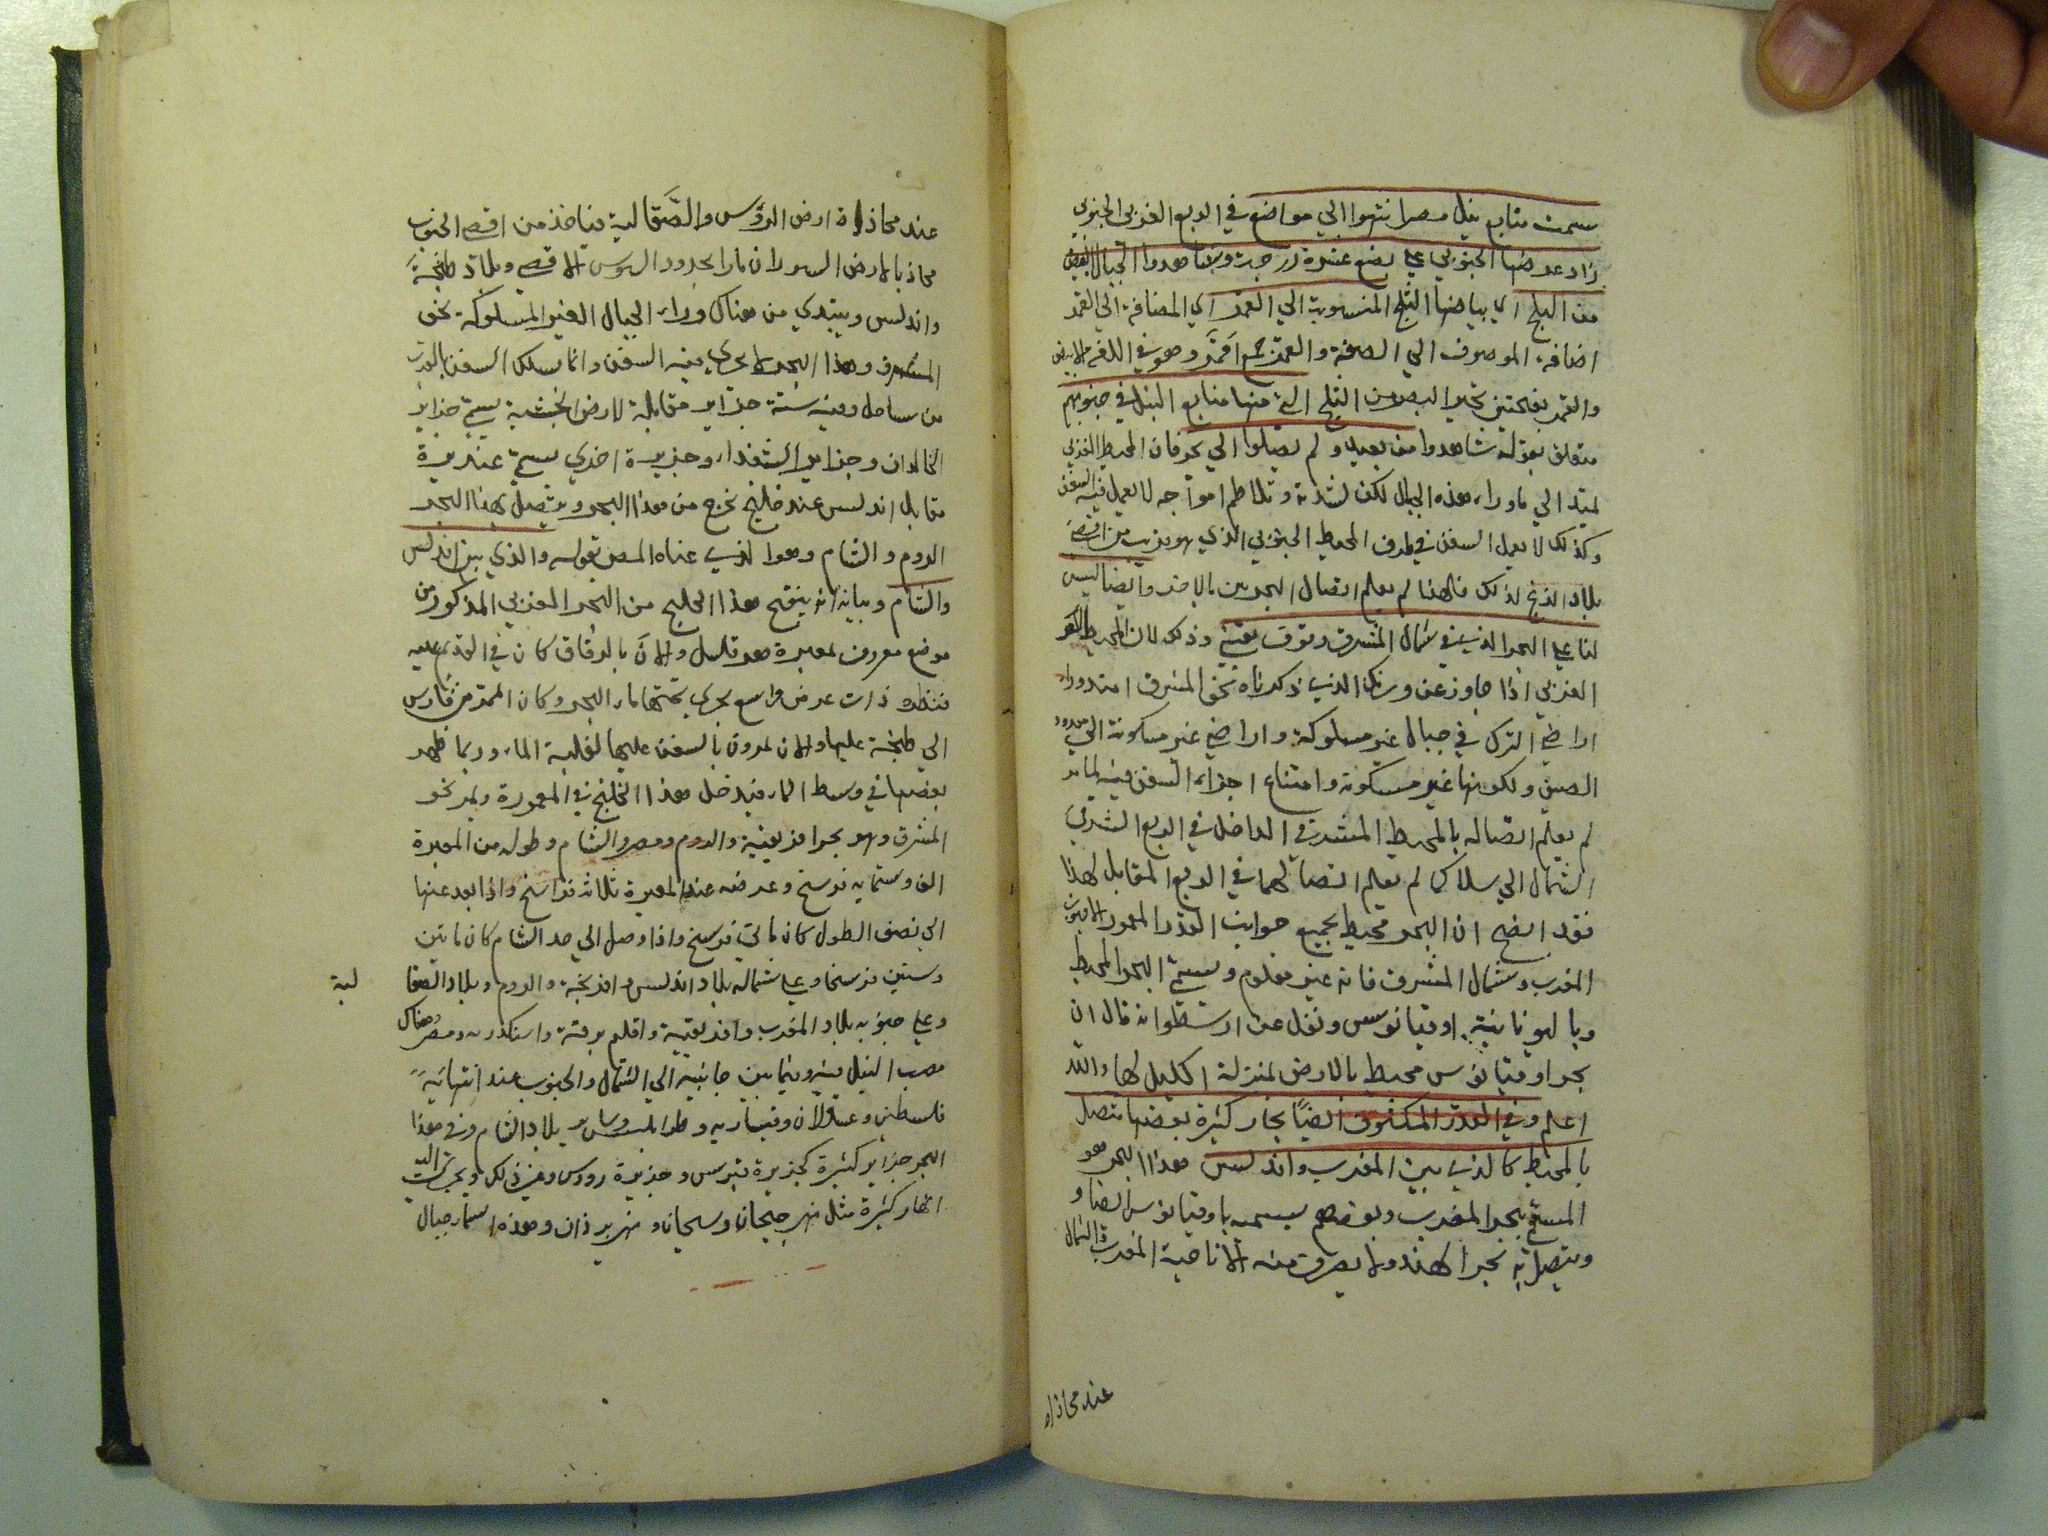 سمت منابع نيل مصر انتهوا الي مواضع في الربع الغربي الجنوبي
زاد عرضها الجنوبي علي بضع عشرة درجة وشاهدوا الجبال البيض
من الثلج اي بياضها الثلج المنسوبة الي القمر اي المضافة الي القمر
اضافة الموصوف الي الصفة والقمر جمع اقمر وهو في اللغة الابيض
والقمر بفتحتين تحير البصر من الثلج التي منها منابع النيل في جنوبهم
متعلق بقوله شاهدوا من بعيد ولم يصلوا الي بحر فان المحيط الغربي
يمتد الي ما وراء هذه الجبال لكن لشدة وتلاطم امواجه لا يعمل فيه السفن
وكذلك لا يعمل السفن في طرف المحيط الجنوبي الذي هو قريب من اقصي
بلاد الزنج لذلك فلهذا لم يعلم اتصال البحرين بالاخر وايضا ليس
لنا علي البحر الذي في شمال المشرق وقوف يقيني وذلك لان المحيط
الغربي اذا جاوز عن الذي ذكرناه نحو المشرق امتد وراء
اراضي الترك في جبال غير مسلوكة واراضي غير مسكونة الي حدود
الصين ولكونها غير مسكونة وامتناع اجراء السفن فيه لما مر
لم يعلم اتصاله بالمحيط المشرقي الداخل في الربع الشرقي
الشمالي كما لم يعلم اتصالهما في الربع المقابل لهذا
فقد اتضح ان البحر محيط بجميع جوانب القدر المعمور الا جنوب
المغرب وشمال المشرق فانه غير معلوم ويسمي البحر المحيط
وباليونانية اوقيانوس ونقل عن ارسطو انه قال ان
بحر اوقيانوس محيط بالارض بمنزلة اكليل لها والله
اعلم وفي القدر المكشوف ايضًا بحار كثيرة بعضها متصل
بالمحيط كالذي بين المغرب واندلس هذا البحر هو
المسمي ببحر المغرب وبعضهم يسميه باوقيانوس ايضا و
ويتصل به بحر الهند ولا يعرف منه الا ناحية المغرب والشمال
عند محاذاه
عند محاذاة ارض الروس والصَّقالبة فياخذ من اقصي الجنوب
محاذيا لارض السودان مارا بحدود السوس الاقصي وبلاد طنجة
واندلس ويبتدي من هناك وراء الجبال الغير المسلوكة نحو
المشرق وهذا البحر لا يجري فيه السفن وانما يسلك السفن بالقرب
من ساحل وفيه ستة جزاير مقابلة لارض الحبشة يسمي جزاير
الخالدات وجزاير السعداء وجزيرة اخري يسمي غديرة
مقابل اندلس عند خليج يخرج من هذا البحر ويتصل بهذا البحر
الروم والشام وهو الذي عناه المص بقوله والذي بين اندلس
والشام وبيانه انه ينفتح هذا الخليج من البحر المغربي المذكور من
موضع معروف بمعبرة هرقلس والان بالزقاق كان في القديم عليه
قنطرة ذات عرض واسع يجري تحتها ماء البحر وكان الممر من فارس
الي طنجة عليها والان يمرون بالسفن عليها لغلبة الماء وربما ظهر
بعضها في وسط الماء فيدخل هذا الخليج في المعمورة ويمر نحو
المشرق وهو بحر افريقية والروم ومصر والشام وطوله من المعبرة
الف وستمايه فرسخ وعرضه عند المعبرة ثلاثة فراسخ واذا بعد عنها
الي نصف الطول كان مائتي فرسخ واذا وصل الي حد الشام كان مائتين
وستين فرسخا وعلي شماله بلاد اندلس وافرنجة والروم وبلاد الصقا
لبة
وعلي جنوبه بلاد المغرب وافريقية واقليم برقة واسكندريه ومصر وهناك
مصب النيل فيه وفيما بين جانبيه الي الشمال والجنوب عند انتهائه
فلسطين وعسقلان وقيساريه وطرابلس وساير بلاد الشام وفي هذا
البحر جزاير كثيرة كجزيرة قبرس وجزيرة رودس وغير ذلك ويجري اليه
انهار كثيرة مثل نهر جيحان وسيحان ونهر بردان وهذه اسماء جبال